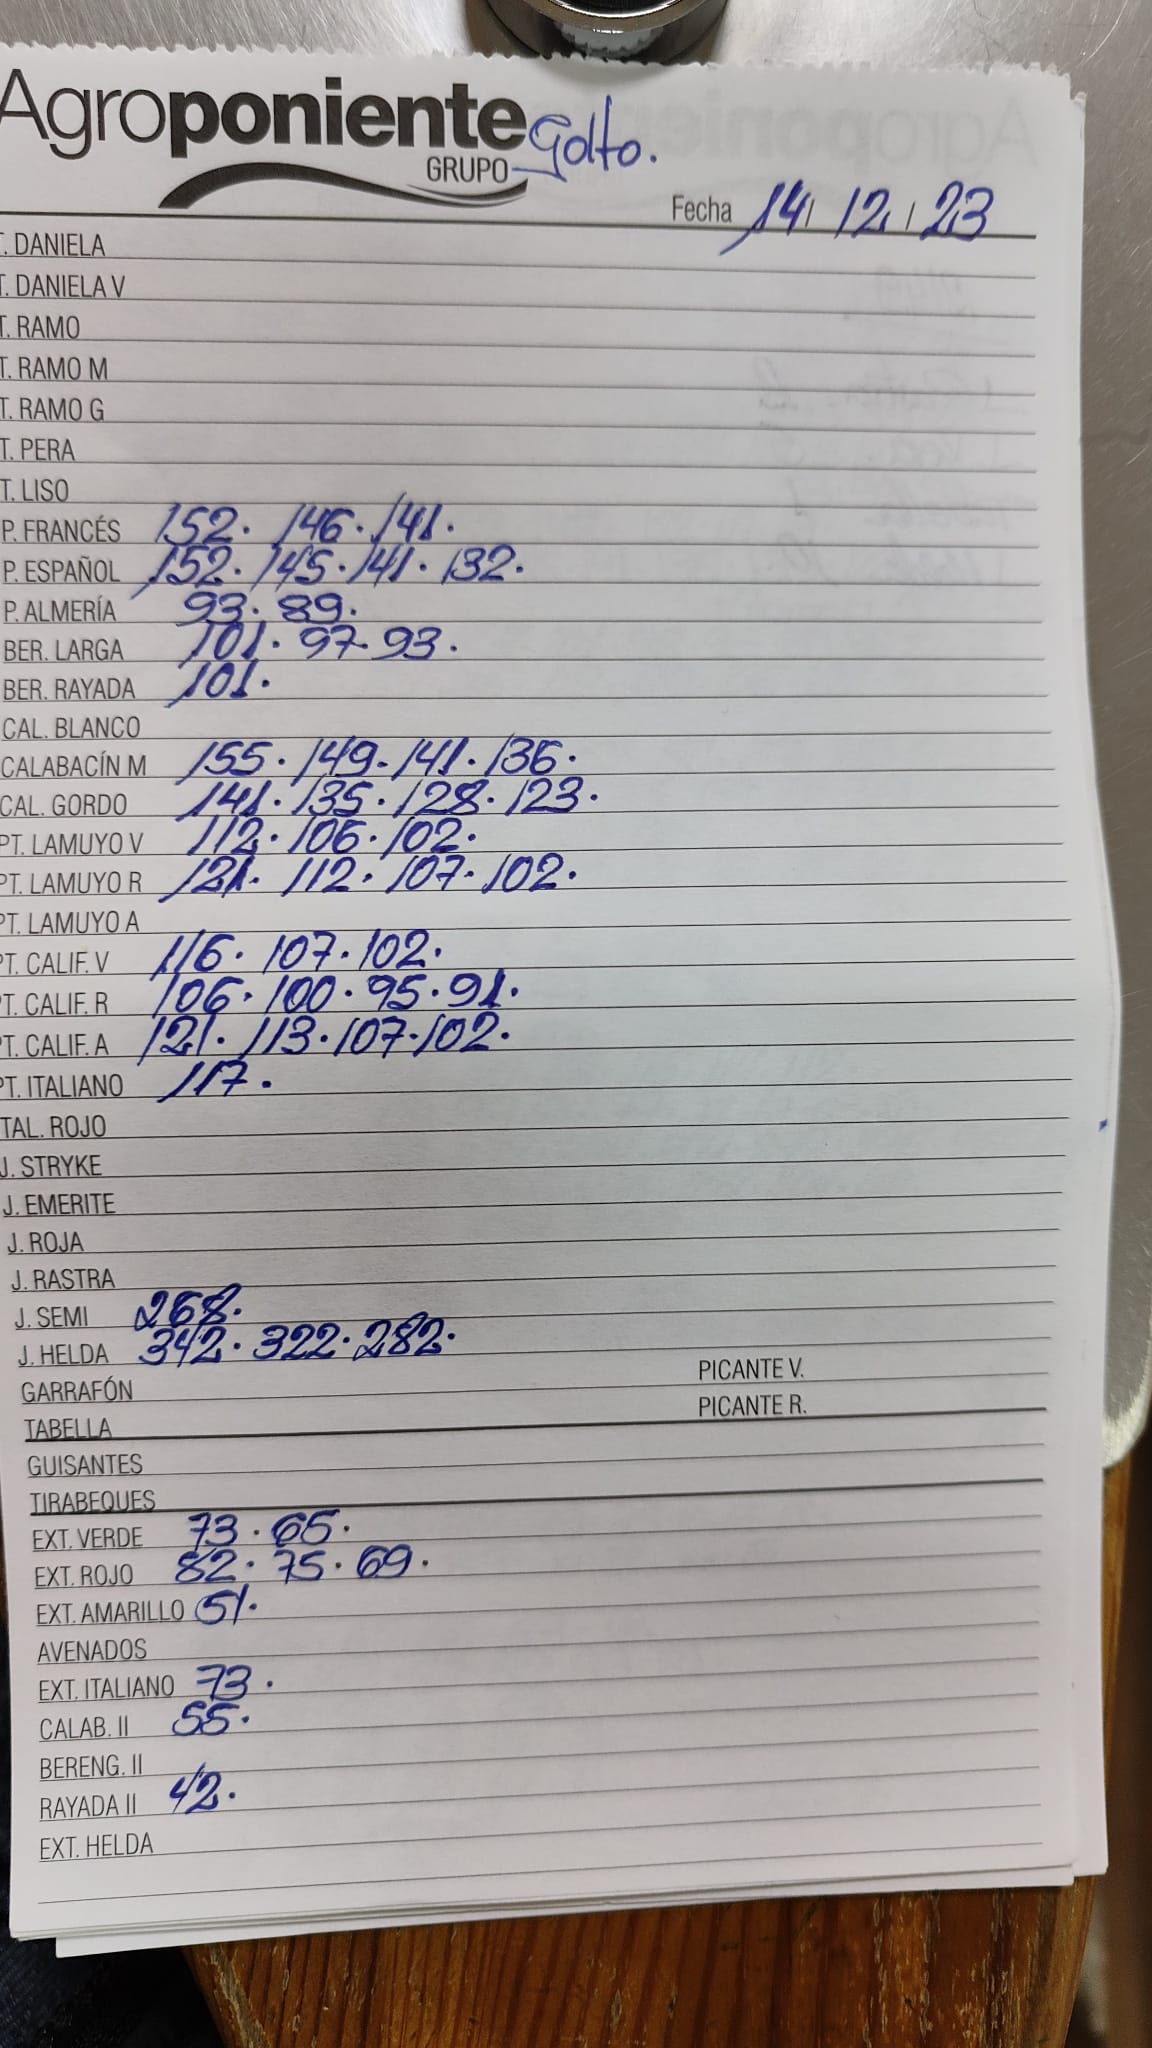 Agroponiente
GRUPO
Golfo.
Fecha 14 / 12 / 23
T. DANIELA
T. DANIELA V
T. RAMO
T. RAMO M
T. RAMO G
T. PERA
T. LISO
P. FRANCÉS 152. 146. 141.
P. ESPAÑOL 152. 145. 141. 132.
P. ALMERÍA 93. 89.
BER. LARGA 101. 97. 93.
BER. RAYADA 101.
CAL. BLANCO
CALABACÍN M 155. 149. 141. 136.
CAL. GORDO 141. 135. 128. 123.
PT. LAMUYO V 112. 106. 102.
PT. LAMUYO R 121. 112. 107. 102.
PT. LAMUYO A
PT. CALIF. V 116. 107. 102.
PT. CALIF. R 106. 100. 95. 91.
PT. CALIF. A 121. 113. 107. 102.
PT. ITALIANO 117.
TAL. ROJO
J. STRYKE
J. EMERITE
J. ROJA
J. RASTRA
J. SEMI 268.
J. HELDA 342. 322. 282.
GARRAFÓN PICANTE V.
TABELLA PICANTE R.
GUISANTES
TIRABEQUES
EXT. VERDE 73. 65.
EXT. ROJO 82. 75. 69.
EXT. AMARILLO 51.
AVENADOS
EXT. ITALIANO 73.
CALAB. II 55.
BERENG. II
RAYADA II 42.
EXT. HELDA